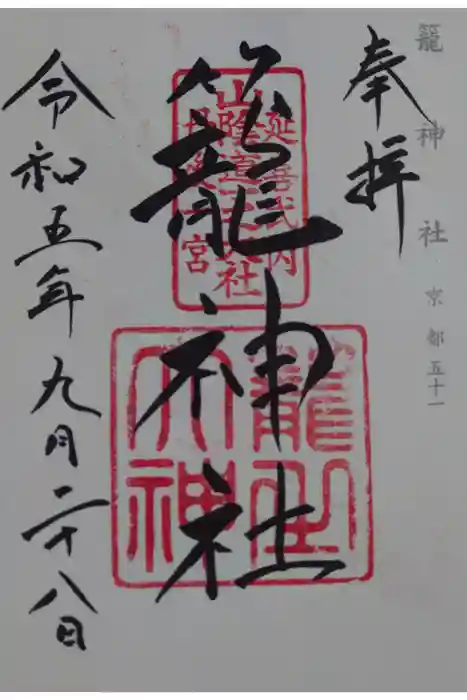 籠神社 京都五十一
奉拝
籠神社
延喜式内
山陰道一之大社
丹後一宮
籠之大神
令和五年九月二十八日